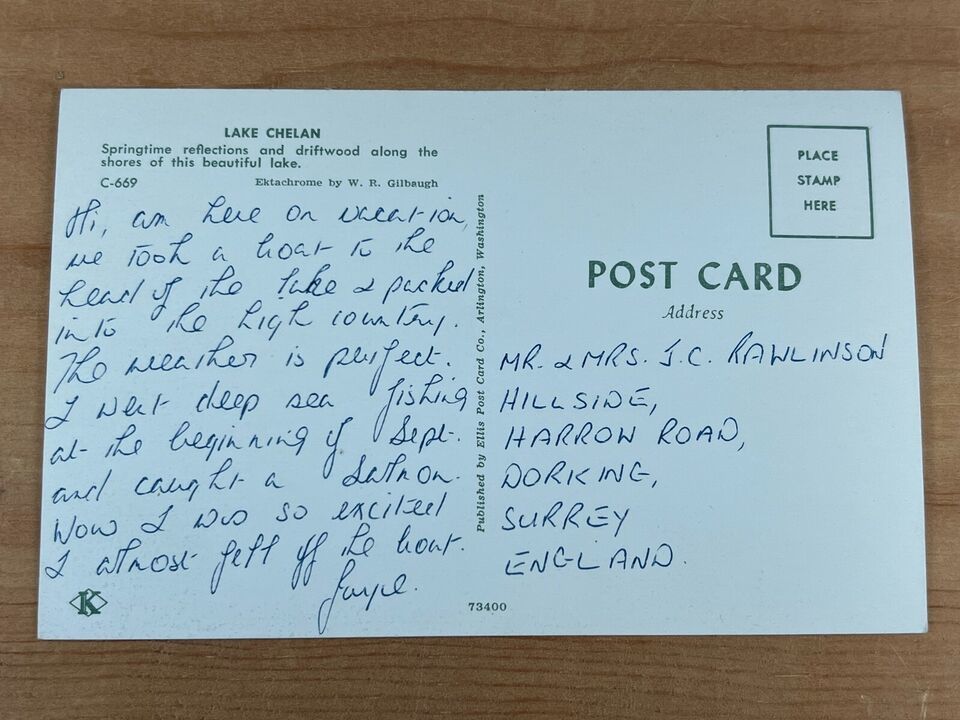 LAKE CHELAN
Springtime reflections and driftwood along the
shores of this beautiful lake.
C-669 Ektachrome by W. R. Gilbaugh
Hi, am here on vacation,
we took a boat to the
head of the lake & packed
into the high country.
The weather is perfect.
I went deep sea fishing
at the beginning of Sept.
and caught a salmon.
Wow I was so excited
I almost fell off the boat.
Joyce.
K
Published by Ellis Post Card Co., Arlington, Washington
73400
PLACE
STAMP
HERE
POST CARD
Address
MR. & MRS. J.C. RAWLINSON
HILLSIDE,
HARROW ROAD,
DORKING,
SURREY
ENGLAND.